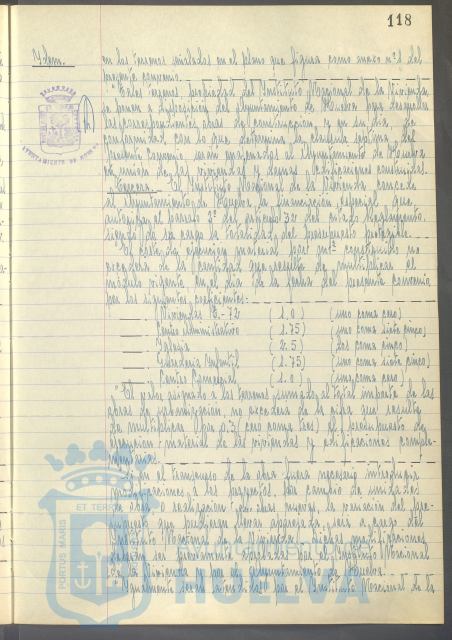 118
Idem.
en los terrenos señalados en el plano que figura como anexo nº 1 del
presente convenio.
"Estos terrenos propiedad del Instituto Nacional de la Vivienda
se ponen a disposición del Ayuntamiento de Huelva para desarrollar
las correspondientes obras de construcción, y en su día de
conformidad con lo que determina la clausula septima del
presente Convenio serán enajenados al Ayuntamiento de Huelva
en unión de las viviendas y demas edificaciones construidas.
Tercera. - El Instituto Nacional de la Vivienda concede
al Ayuntamiento de Huelva la financiación especial que
autoriza el parrafo 3º del artículo 32 del citado Reglamento,
siendo de su cargo la totalidad del presupuesto protegible.
"El coste de ejecución material por m² construido no
excederá de la cantidad que resulte de multiplicar el
módulo vigente en el dia de la fecha del presente convenio
por los siguientes coeficientes:
Viviendas - 72 (1.0) (uno coma cero)
Centro Administrativo (1.75) (uno coma siete cinco)
Iglesia (2.5) (dos coma cinco)
Guarderia Infantil (1.75) (uno coma siete cinco)
Centro Comercial (1.0) (uno coma cero)
"El valor asignado a los terrenos, sumado al total importe de las
obras de urbanización, no excederá de la cifra que resulte
de multiplicar por 0.3 (cero coma tres) el presupuesto de
ejecución material de las viviendas y edificaciones comple-
mentarias.
Si en el transcurso de la obra fuera necesario introducir
modificaciones a los proyectos, por cambio de unidades
de obra o realización de obras nuevas, la variación del pre-
supuesto que pudieran llevar aparejada, será a cargo del
Instituto Nacional de la Vivienda. Dichas modificaciones
deberán ser previamente aprobadas por el Instituto Nacional
de la Vivienda y por el Ayuntamiento de Huelva.
"Igualmente serán por el Instituto Nacional de la
AYUNTAMIENTO DE HUELVA
PORTUS MARIS ET TERRAE
HUELVA